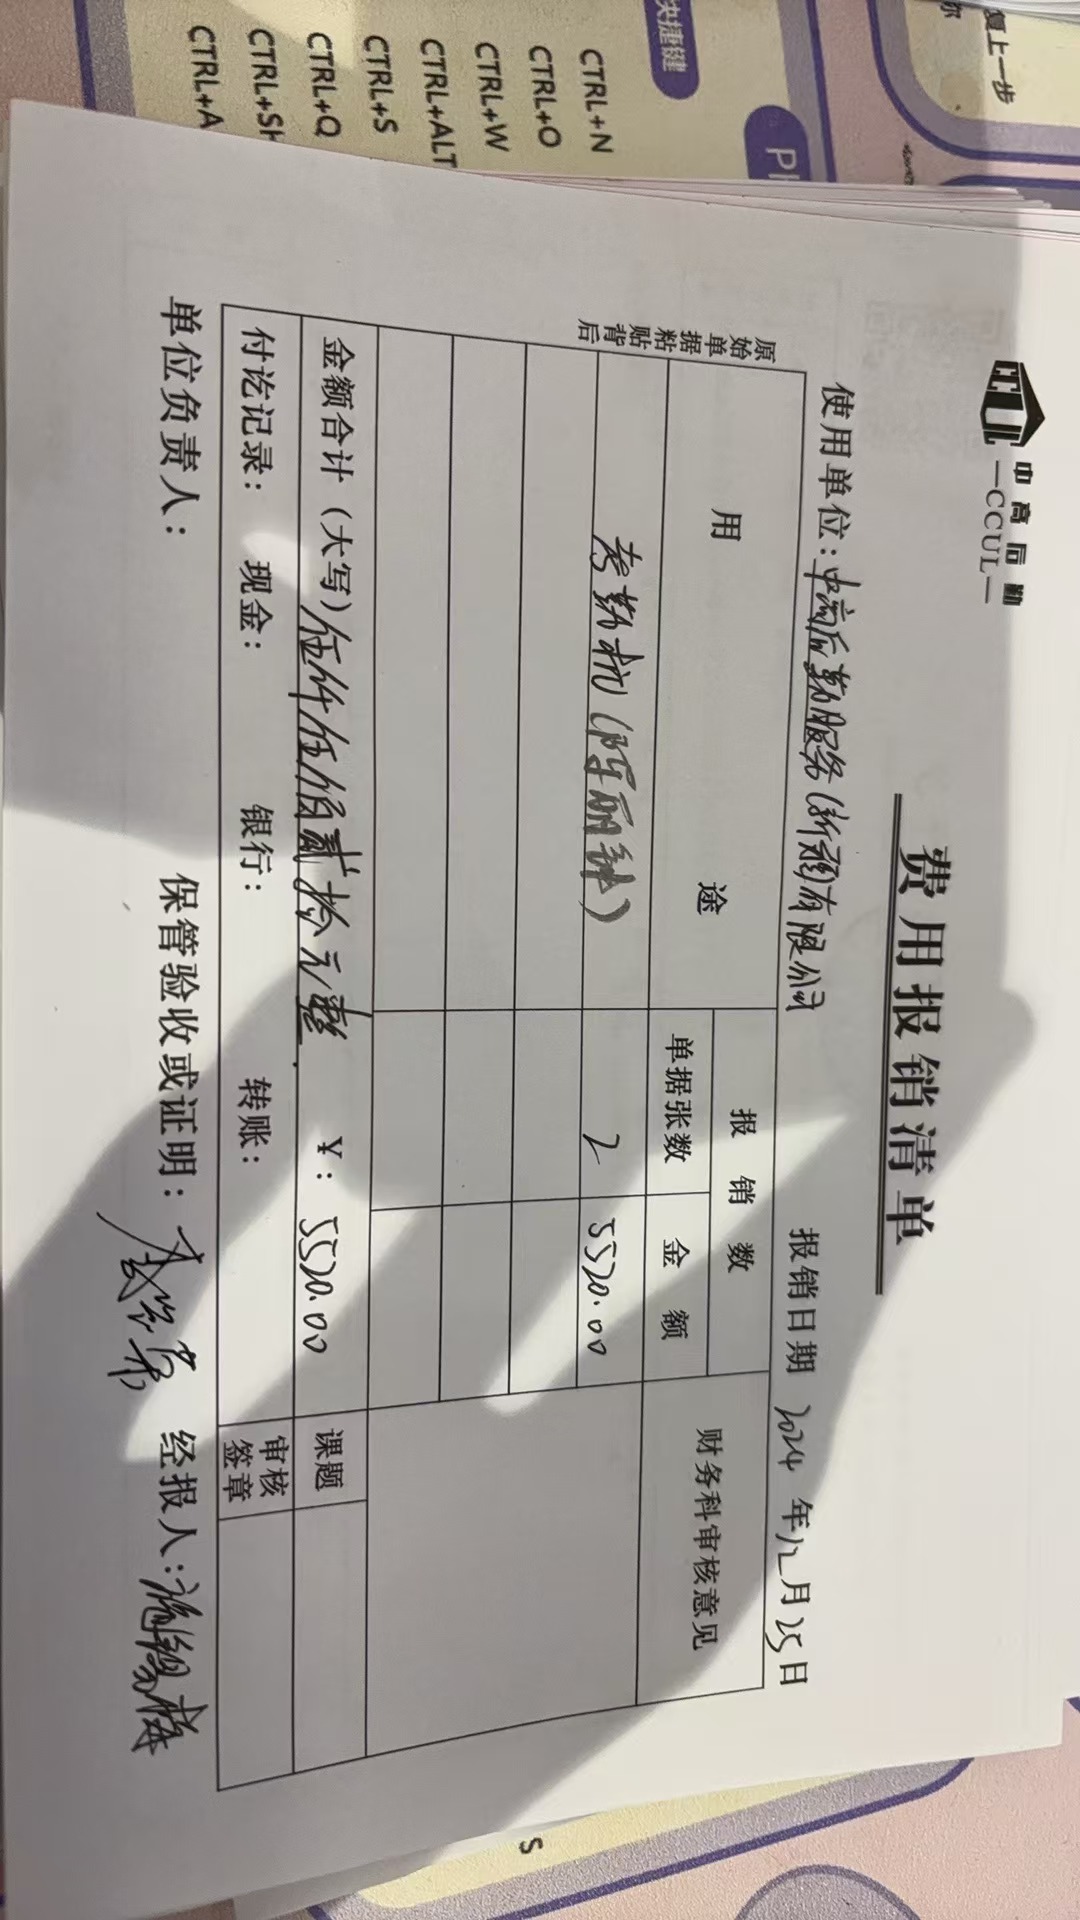 复上一步
快捷键
CTRL+N
CTRL+O
CTRL+W
CTRL+ALT
CTRL+S
CTRL+Q
CTRL+SH
CTRL+A
中高后勤
—CCUL—
费用报销清单
使用单位:中高后勤服务(新疆)有限公司 报销日期 2024 年12月25日
原始单据粘贴背后
用 途 报 销 数 财务科审核意见
单据张数 金 额
考勤机(陈丽) 2 5520.00
金额合计(大写)伍仟伍佰贰拾元整 ¥:5520.00 课题
付讫记录: 现金: 银行: 转账: 审核签章
单位负责人: 保管验收或证明: 经报人:
S